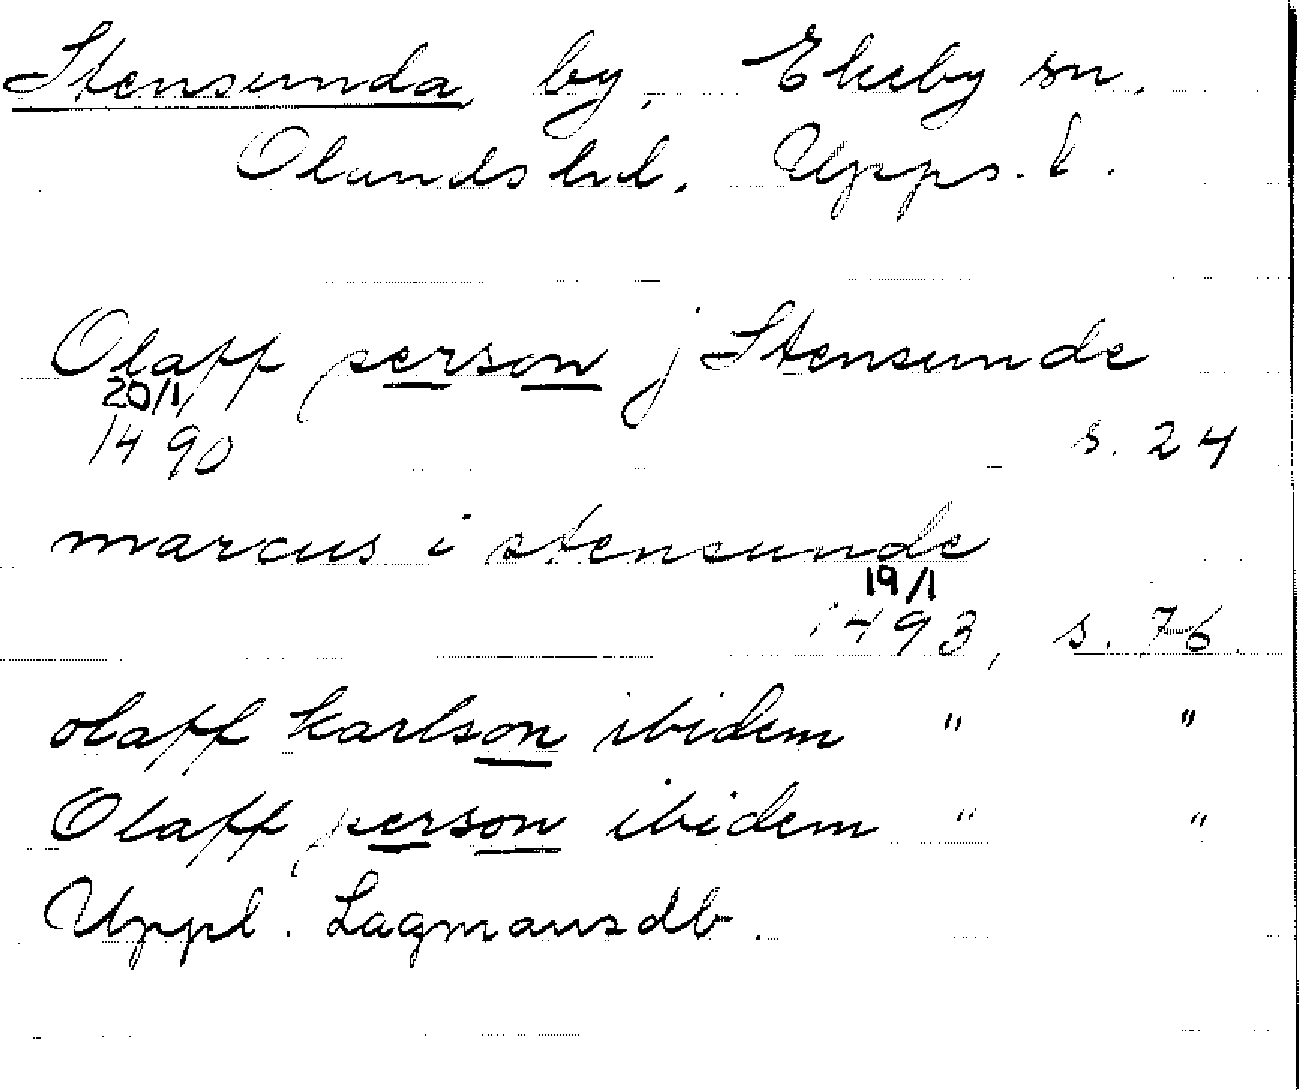 Stensunda by, Ekeby sn.
Olands hd. Upps. l.
Olaff person j Stensunde
20/1
1490 s. 24
marcus i stensunde
19/1
1493, s. 76.
olaff karlson ibidem " "
Olaff person ibidem " "
Uppl. Lagmansdb.